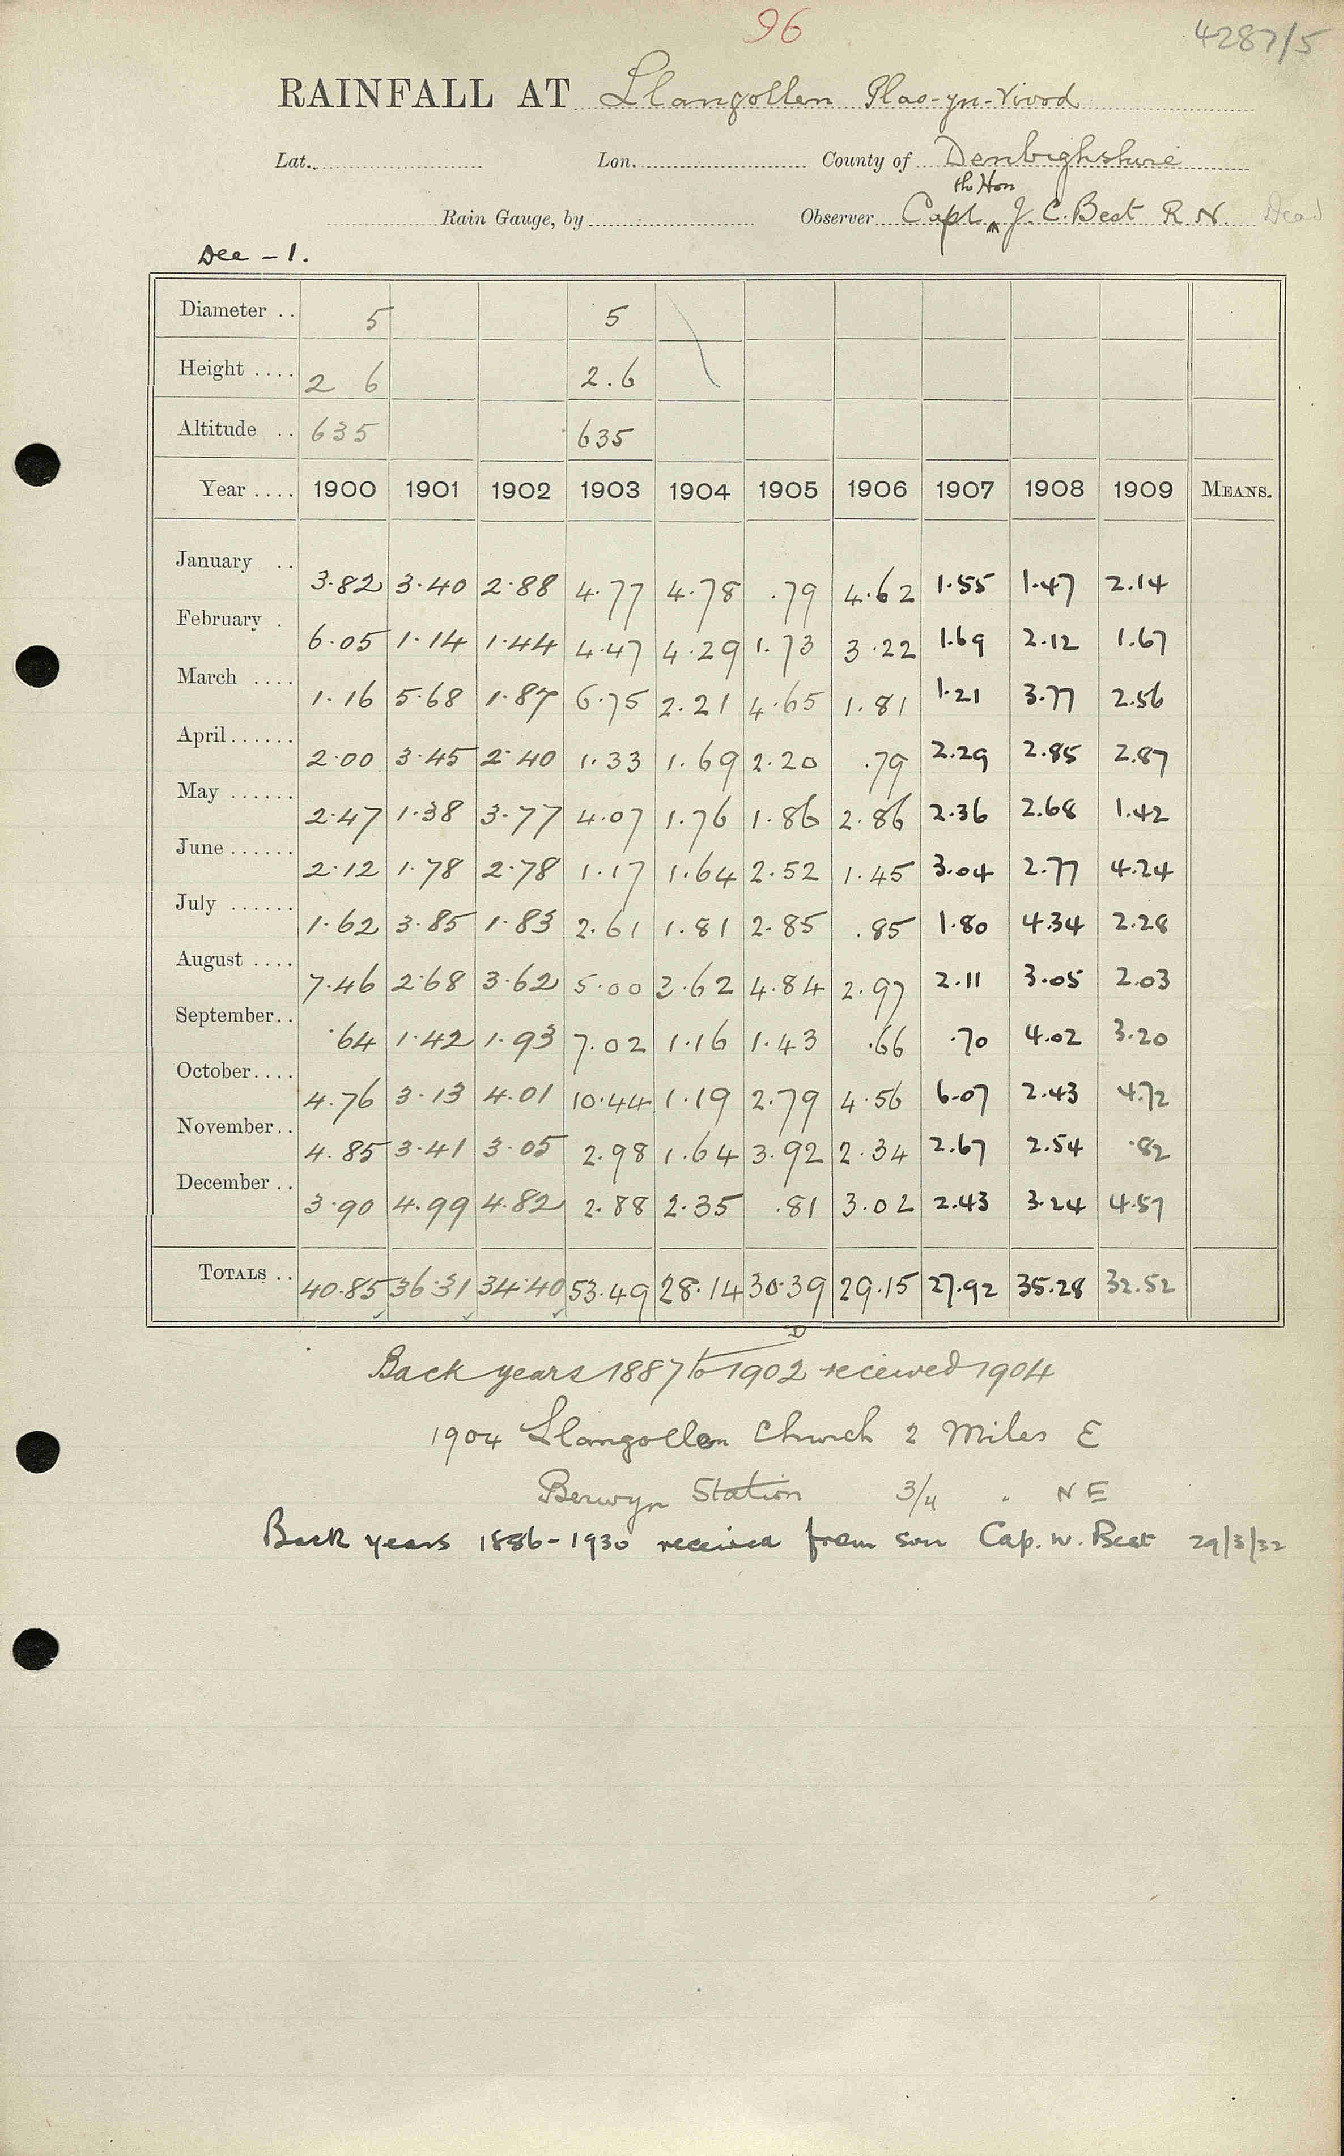 96
4287/5
RAINFALL AT Llangollen Plas-yn-Vivod
Lat. Lon. County of Denbighshire
Rain Gauge, by Observer Capt th Hon J. C. Best R N. Dead
Dee - 1.
Diameter .. 5 5
Height .... 2 6 2.6
Altitude .. 635 635
Year .... 1900 1901 1902 1903 1904 1905 1906 1907 1908 1909 MEANS.
January .. 3.82 3.40 2.88 4.77 4.78 .79 4.62 1.55 1.47 2.14
February . 6.05 1.14 1.44 4.47 4.29 1.73 3.22 1.69 2.12 1.67
March .... 1.16 5.68 1.87 6.75 2.21 4.65 1.81 1.21 3.77 2.56
April ...... 2.00 3.45 2.40 1.33 1.69 2.20 .79 2.29 2.85 2.87
May ...... 2.47 1.38 3.77 4.07 1.76 1.86 2.86 2.36 2.68 1.42
June ...... 2.12 1.78 2.78 1.17 1.64 2.52 1.45 3.04 2.77 4.24
July ...... 1.62 3.85 1.83 2.61 1.81 2.85 .85 1.80 4.34 2.28
August .... 7.46 2.68 3.62 5.00 3.62 4.84 2.97 2.11 3.05 2.03
September.. .64 1.42 1.93 7.02 1.16 1.43 .66 .70 4.02 3.20
October.... 4.76 3.13 4.01 10.44 1.19 2.79 4.56 6.07 2.43 4.72
November.. 4.85 3.41 3.05 2.98 1.64 3.92 2.34 2.67 2.54 .82
December .. 3.90 4.99 4.82 2.88 2.35 .81 3.02 2.43 3.24 4.57
TOTALS .. 40.85 36.31 34.40 53.49 28.14 30.39 29.15 27.92 35.28 32.52
Back years 1887 to 1902 received 1904
1904 Llangollen Church 2 Miles E
Berwyn Station 3/4 " N E
Back years 1886-1930 received from son Cap. W. Best 29/3/32